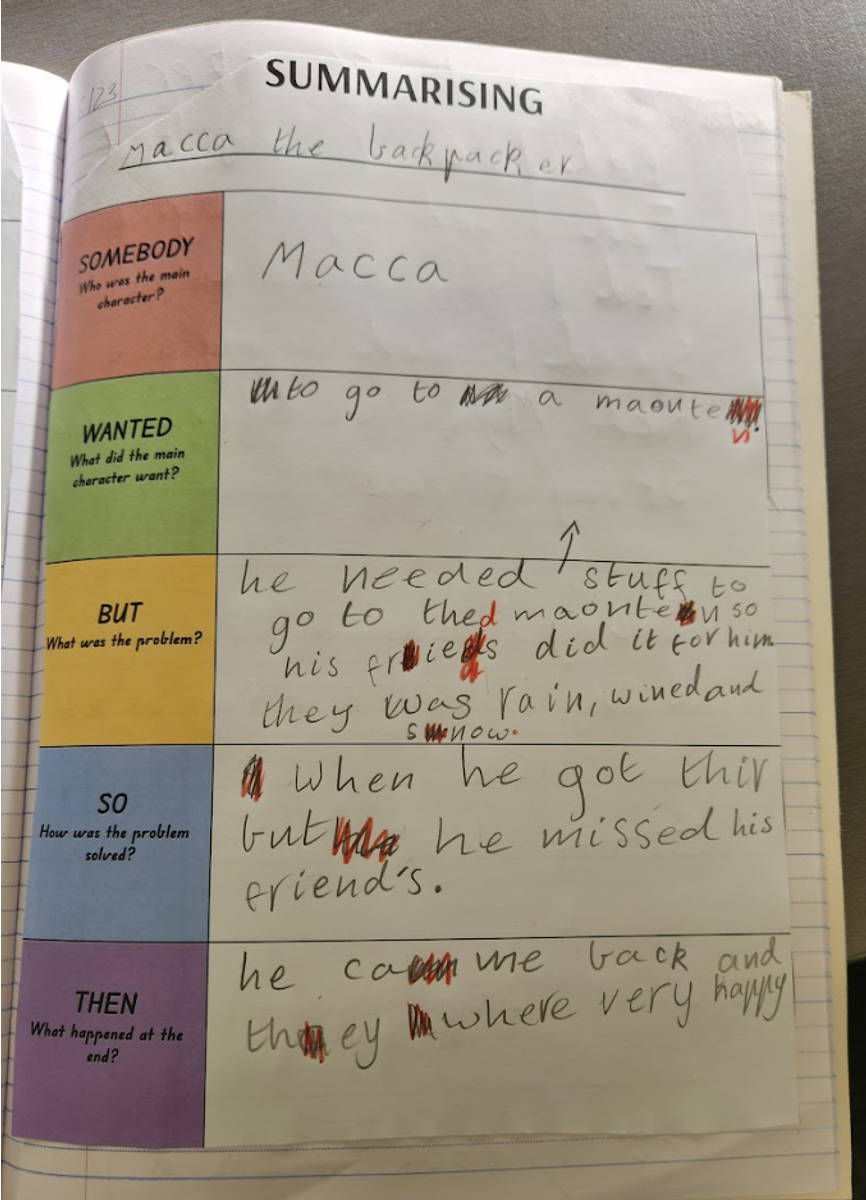 123
SUMMARISING
Macca the backpacker
SOMEBODY
Who was the main
character?
Macca
WANTED
What did the main
character want?
to go to a maonte
n
BUT
What was the problem?
he needed stuff to
go to the maonten so
his frieds did it for him
they was rain, wined and
snow.
SO
How was the problem
solved?
When he got thir
but he missed his
friend's.
THEN
What happened at the
end?
he came back and
they where very happy